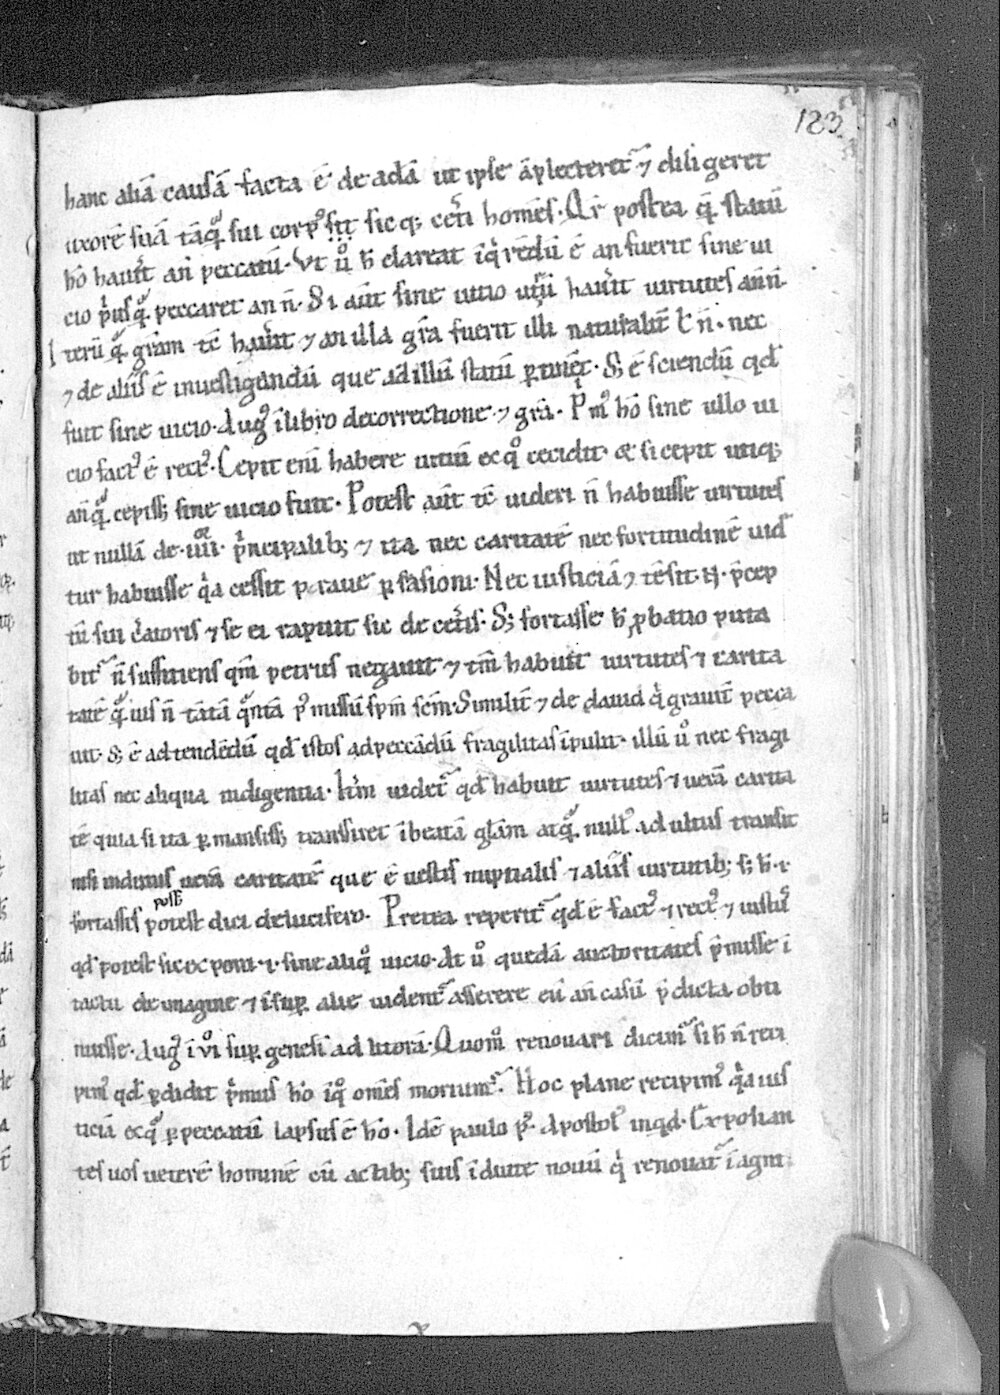 123
hanc aliā causā facta ē de adā ut ipse āplecteret᷑ ⁊ diligeret
uxorē suā tāqͣ sui corpꝰ sit sic q; cet̄i homēs. Qr̄ postea q̄ statū
hō hau᷑it añ peccatū. Vt ů h̄ clareat iq᷑rēdū ē an fuerit sine ui
cio p᷑usqͣ peccaret an n̄. Si aūt sine uitio ut᷑ū hau᷑it uirtutes an n̄.
Iterū qͣ gr̄am tc̄ hab᷑uit ⁊ an illa gr̄a fuerit illi naturalit̄ ł n̄. nec
⁊ de aliis ē inuestigandū que ad illū statū ꝑtinēt. S; ē sciendū qd̄
fuit sine uicio. Aug᷑ ī libro de correctione ⁊ gr̄a. Pm᷑ hō sine ullo ui
cio factꝰ ē rectꝰ. Cepit enī habere uitiū ex qͦ cecidit. & si cepit utiq;
an̄qͣ cepiss; sine uicio fuit. Potest aūt tc̄ uideri n̄ habuisse uirtutes
ut nullā de .iiii. p᷑ncipalib; ⁊ ita nec caritatē nec fortitudinē uid᷑
tur habuisse q᷑a cessit praue ꝑsuasioni. Nec iusticiā ⁊ tēsit p̄cep
tū sui c᷑atoris ⁊ se ei rapuit sic de cet᷑is. S; fortasse h̄ ꝓbatio puta
bit᷑ n̄ sufficiens qm̄ petrus negauit ⁊ tm̄ habuit uirtutes ⁊ carita
tatē qͣuis n̄ tātā qͣntā pꝰ missū spm̄ scm̄. Similit̄ ⁊ de dauid q᷑ grauit᷑ pecca
uit. S; ē adtendēdū qd̄ istos ad peccādū fragilitas īpulit. illū ů nec fragi
litas nec aliqua indigentia. Itm̄ uidet᷑ qd̄ habuit uirtutes ⁊ uerā carita
tē quia si ita ꝑmansiss; transiret ī beatā gl̄am atqͣ nullꝰ adultus transit
nisi indutus uerā caritatē que ē uestis nuptialis ⁊ aliis uirtutib; s; h̄ .i.
fortassis potest dici de lucifero. Pretea reperit᷑ qd̄ ē factꝰ ⁊ rectꝰ ⁊ iustꝰ
qd̄ potest sic exponi .i. sine aliqͦ uicio. At ů quedā auctoritates p̄misse ī
tactu de imagine ⁊ īsuꝑ alie uident᷑ asserere eū an̄ casū p̄dicta obti
nuisse. Aug᷑ ī vi̊ suꝑ genesi ad litterā. Quom̊ renouari dicim᷑ si h̄ n̄ reci
pim᷑ qd̄ ꝑdidit p᷑mus hō ī qͦ om̄s moriunt᷑. Hoc plane recipim᷑ q᷑a ius
ticiā ex qͣ ꝑ peccatū lapsus ē hō. Idē paulo pꝰ. Apostolꝰ inqd̄. Expolian
tes uos ueterē hominē cū actib; suis īduite nouū q᷑ renouat᷑ ī agni